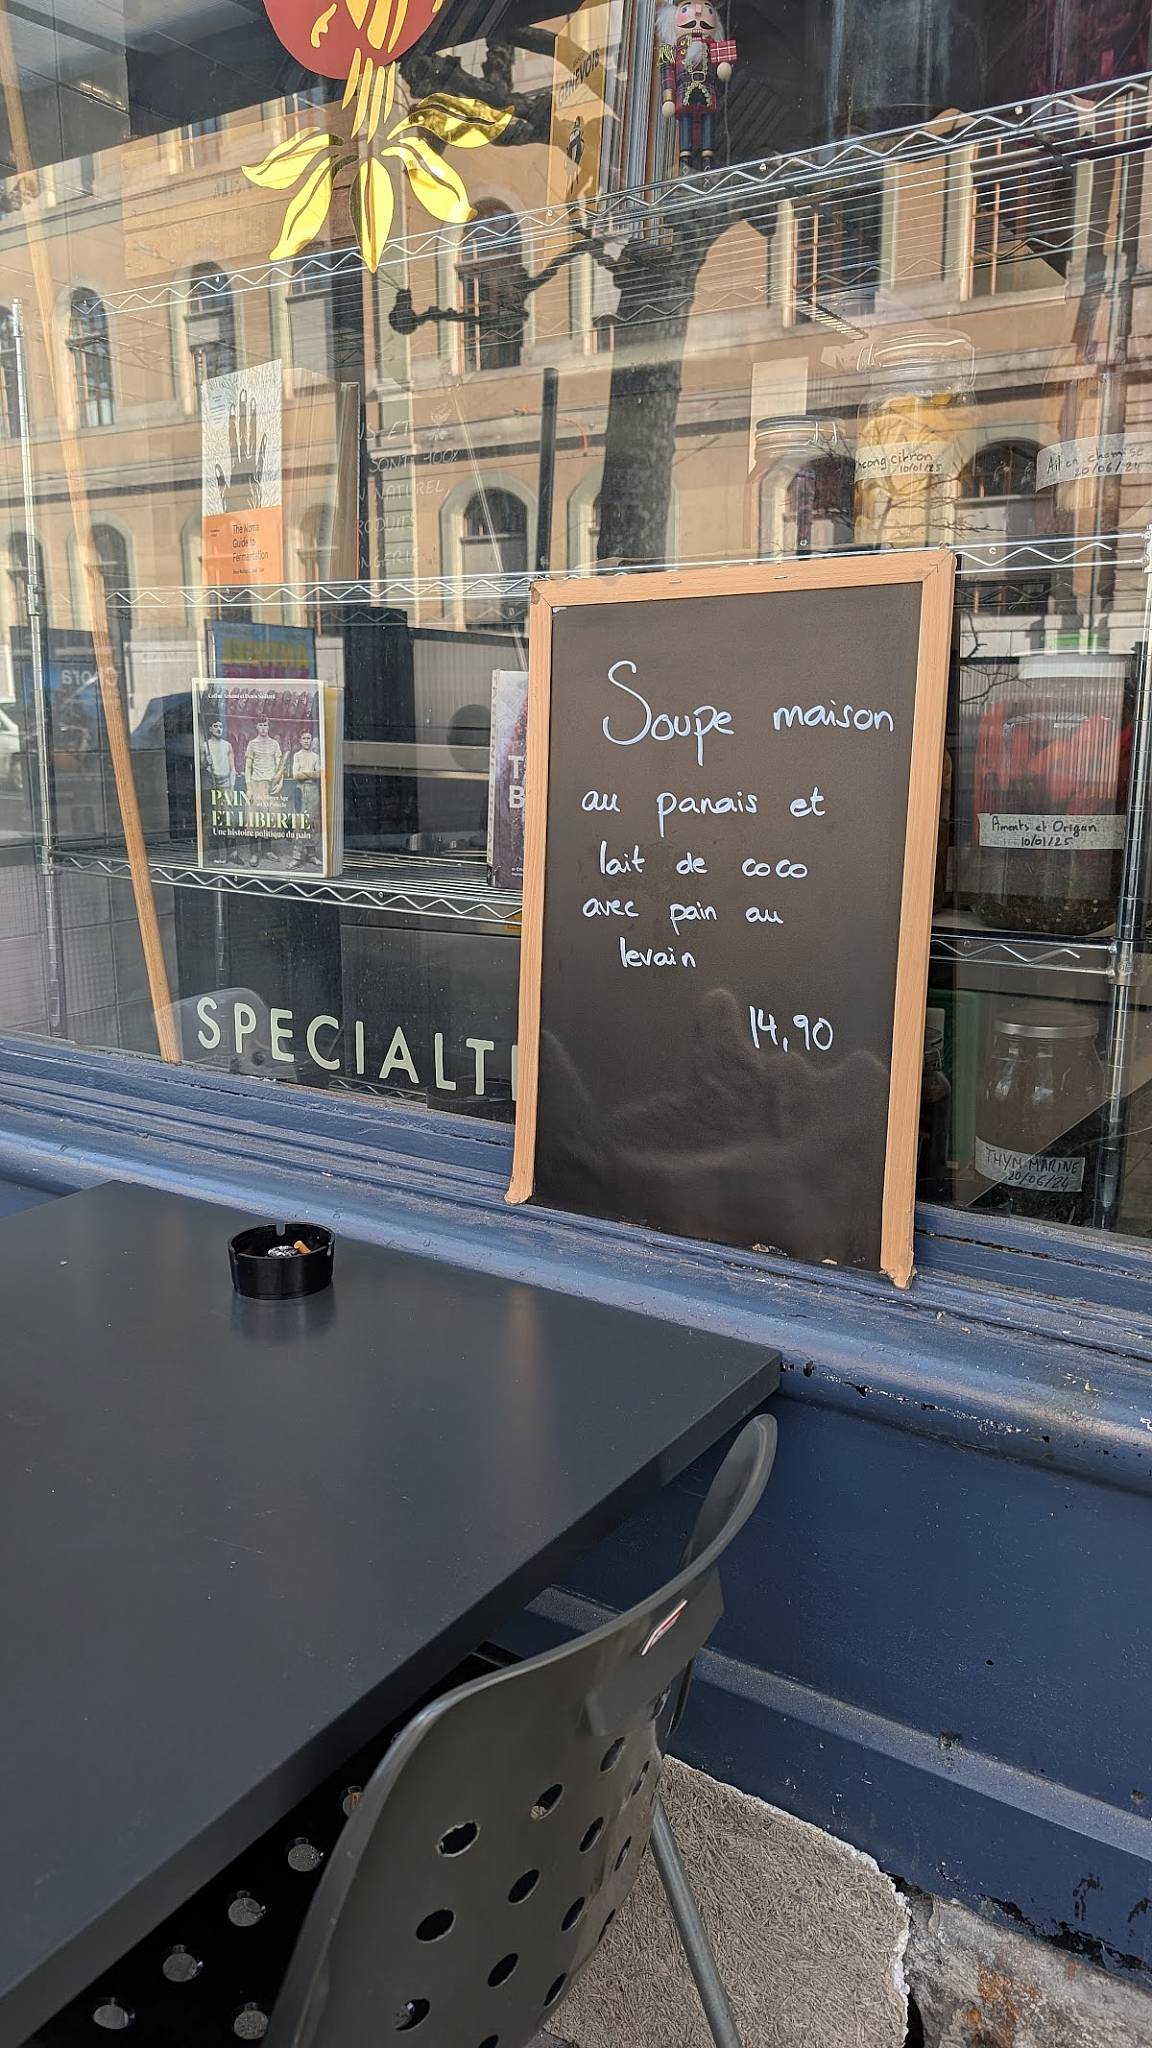 GENEVOIS
The Noma
Guide to
Fermentation
SONT 100%
NATUREL
citron
10/01/25
Ail en chemise
20/06/24
PAIN
ET LIBERTÉ
Une histoire politique du pain
Soupe maison
au panais et
lait de coco
avec pain au
levain
14,90
Piments et Origan
10/01/25
SPECIALT
THYM MARINE
20/06/24